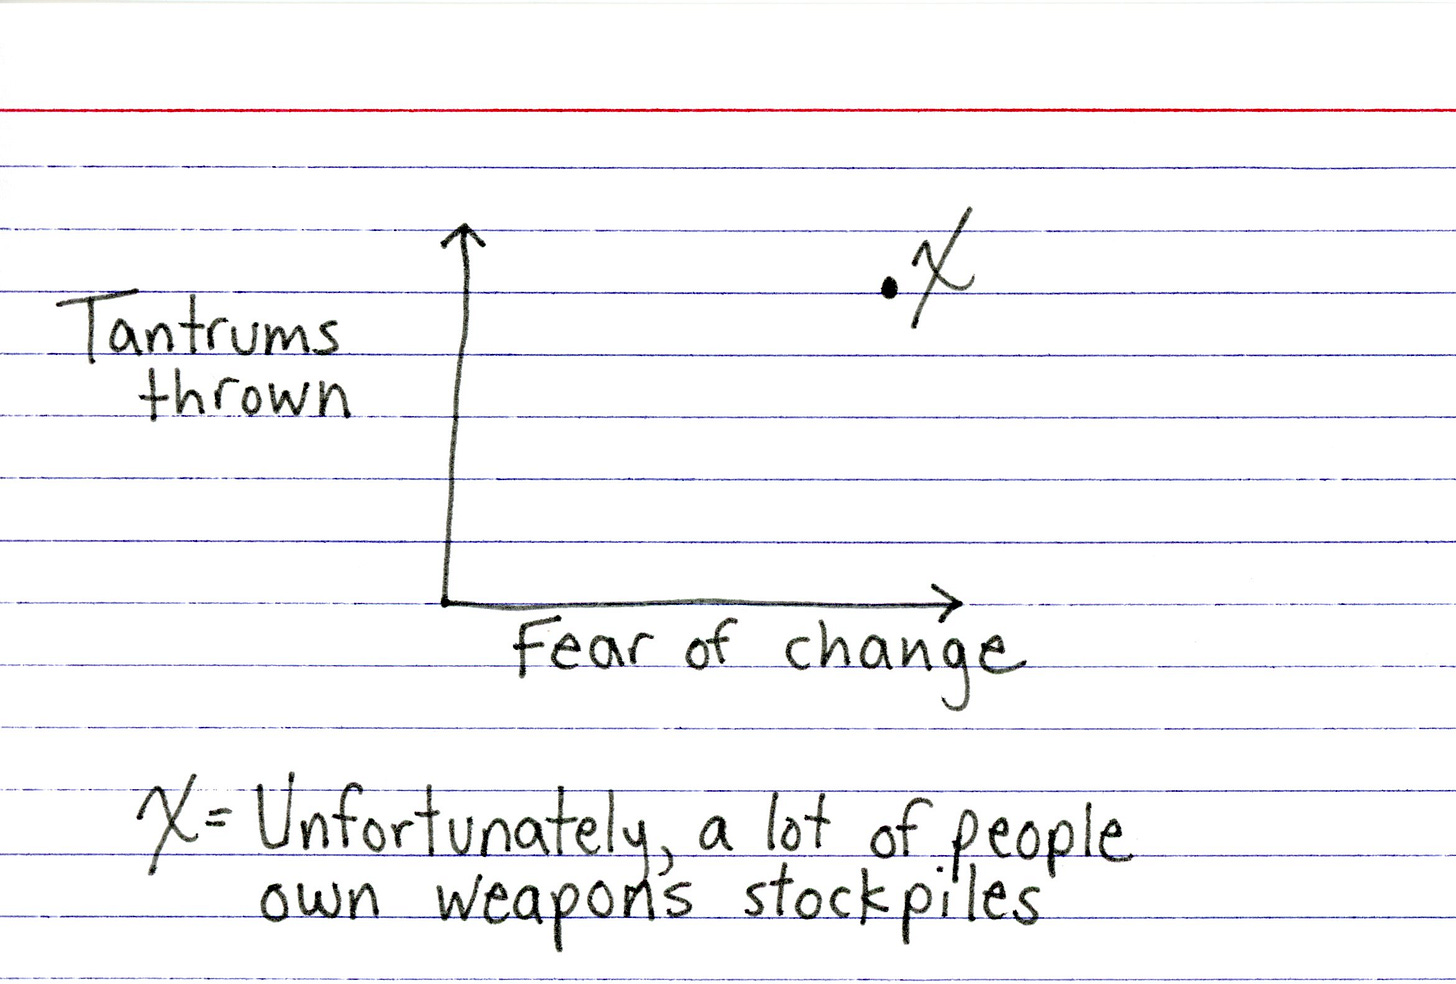 X
Tantrums
thrown
Fear of change
X = Unfortunately, a lot of people
own weapons stockpiles